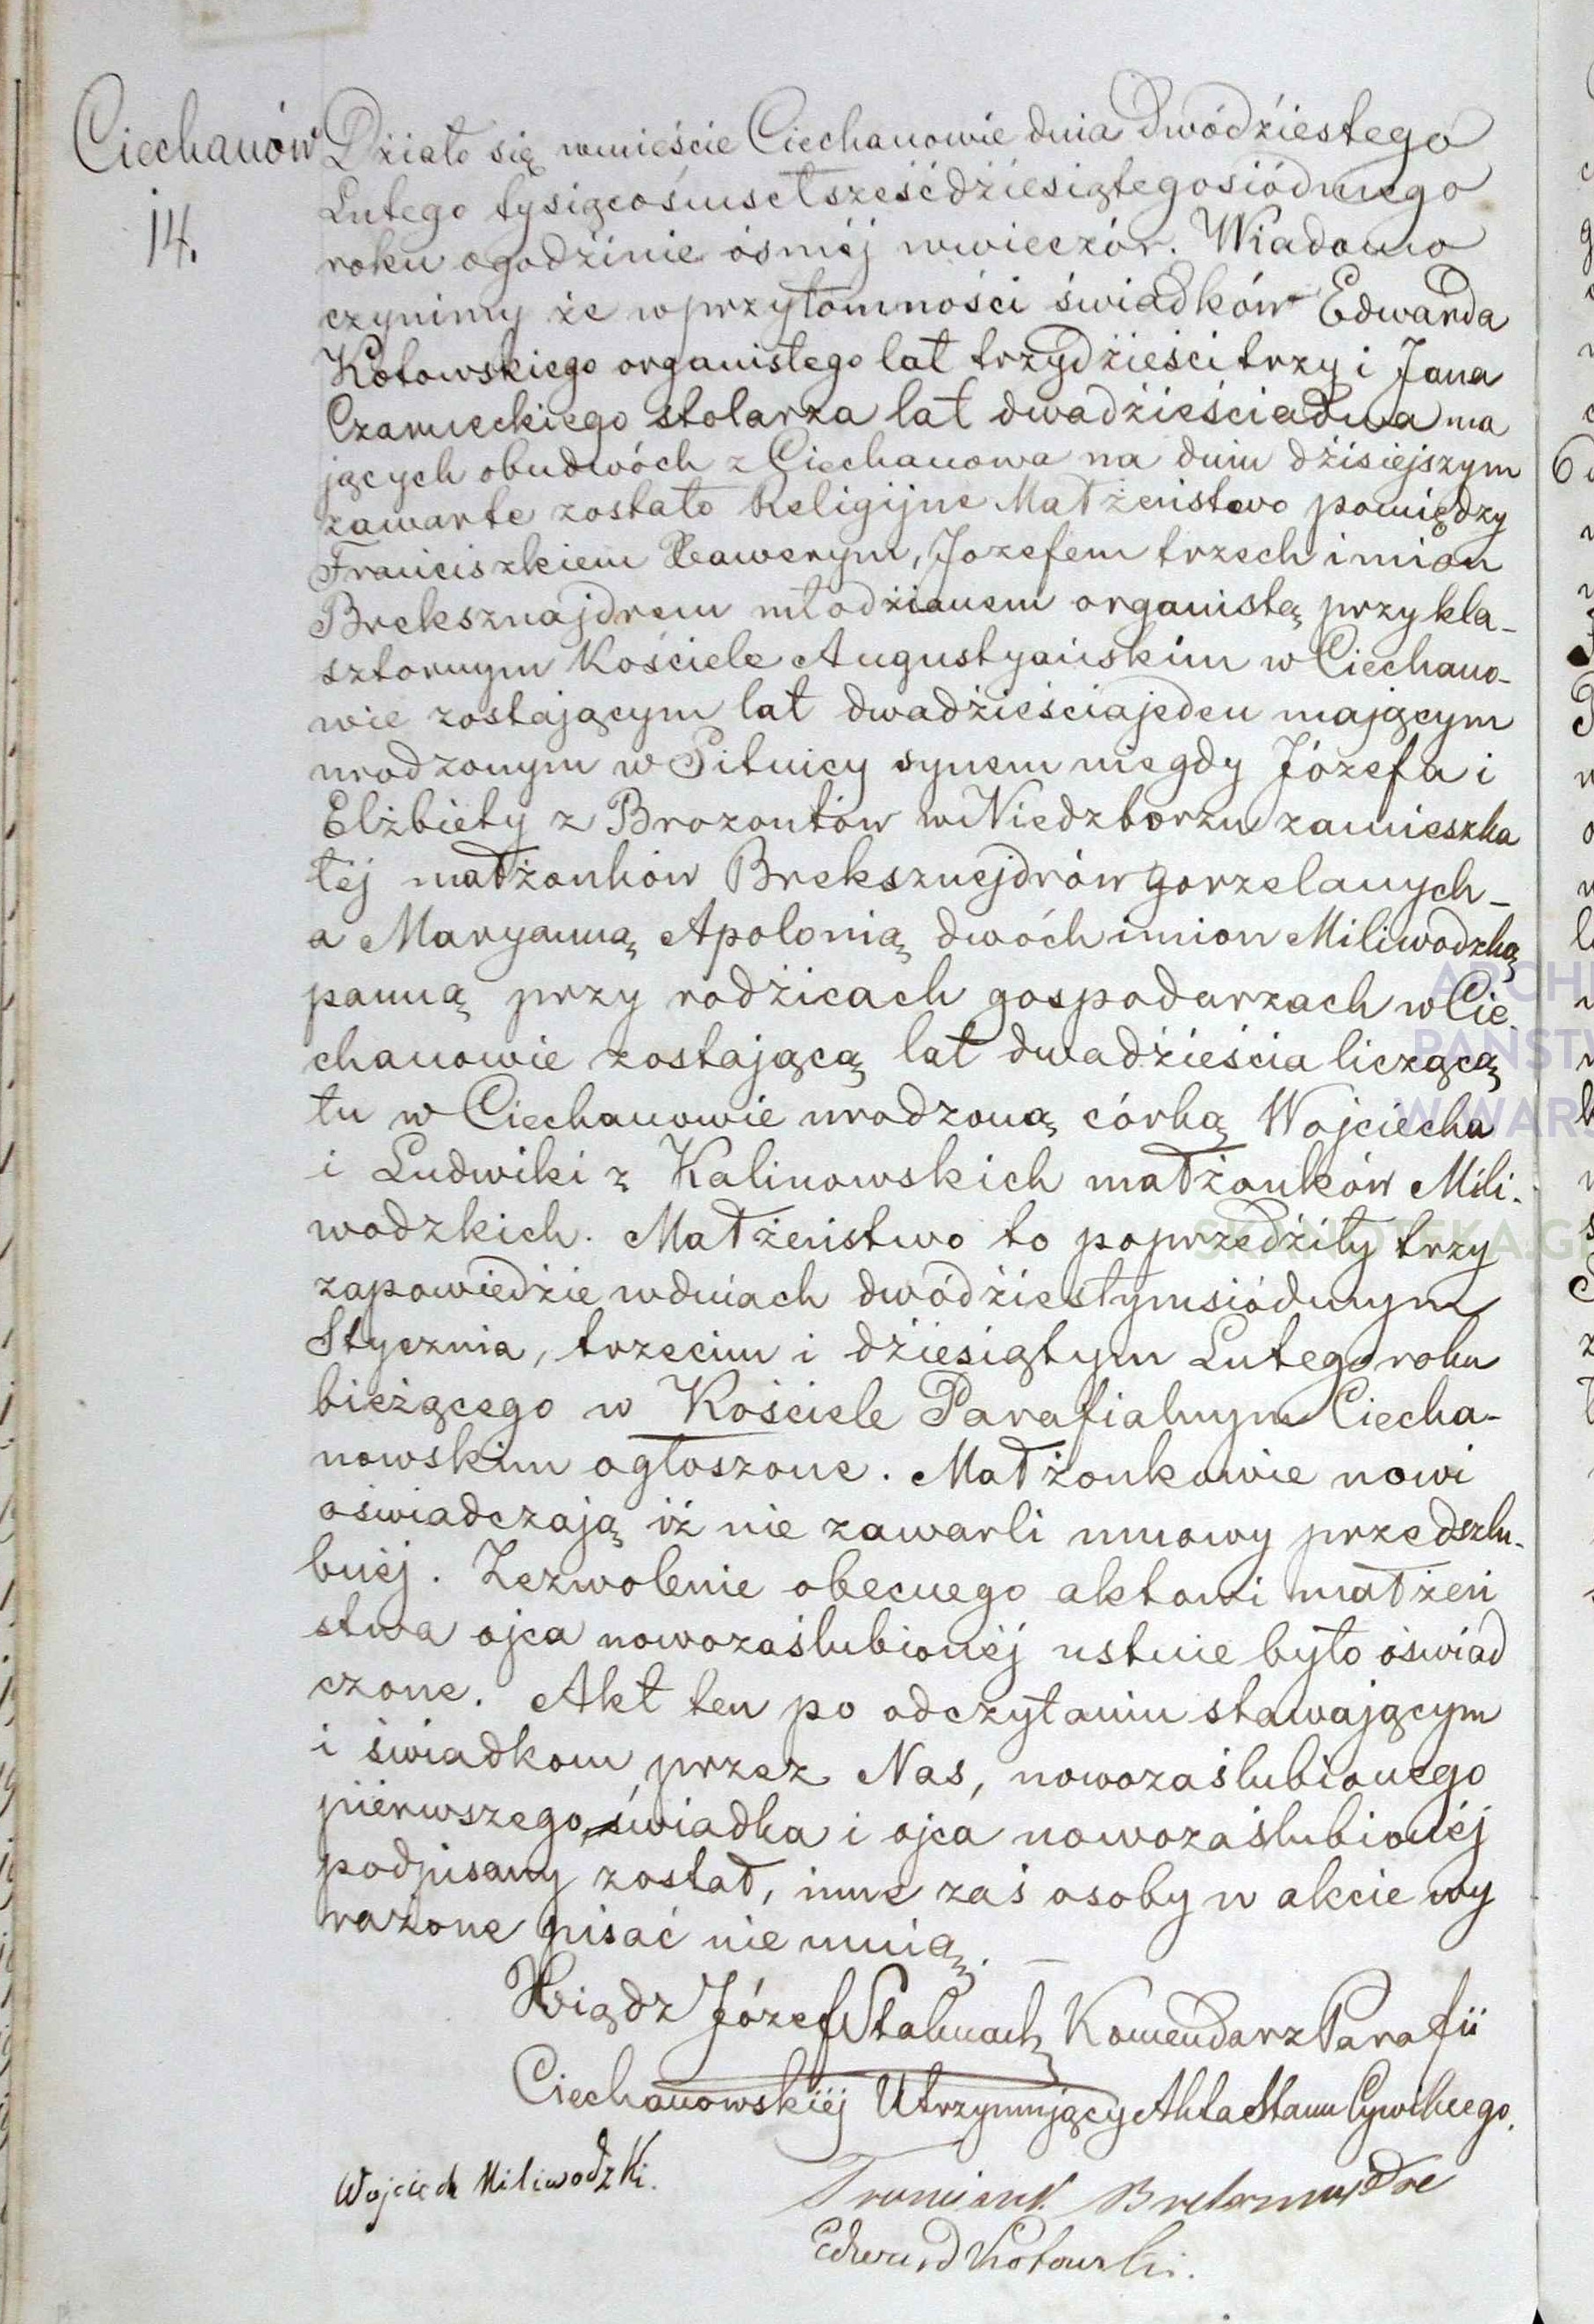 Ciechanów
14.
Działo się wmieście Ciechanowie dnia Dwódźiestego
Lutego tysiącośmsetsześćdźiesiątegosiódmego
roku ogodźinie ósméj wwieczór. Wiadomo
czynimy że wprzytomności świadków Edwarda
Kotowskiego organistego lat trzydźieści trzy i Jana
Czarneckiego stolarza lat dwadźieściadwa ma
jących obudwóch z Ciechanowa na dniu dźisiejszym
zawarte zostało Religijne Małżeństwo pomiędzy
Franciszkiem Xawerym, Jozefem trzech imion
Breksznajdrem młodźianem organistą przy kla-
sztornym Kościele Augustyańskim w Ciechano-
wie zostającym lat dwadźieściajeden mającym
urodzonym w Situicy synem niegdy Józefa i
Elżbiety z Brozontów w Niedzborzu zamieszka
łéj małżonków Breksznejdrów gorzelanych -
a Maryanną Apolonią dwóch imion Miliwodzką
panną przy rodźicach gospodarzach w Cie
chanowie zostającą lat dwadźieścia liczącą
tu w Ciechanowie urodzoną córką Wojciecha
i Ludwiki z Kalinowskich małżonków Mili-
wodzkich. Małżeństwo to poprzedźiły trzy
zapowiedźie wdniach dwódźiestymsiódmym
Stycznia, trzecim i dźiesiątym Lutego roku
bieżącego w Kościele Parafialnym Ciecha-
nowskim ogłoszone. Małżonkowie nowi
oświadczają iż nie zawarli umowy przedszlu-
bnéj. Zezwolenie obecnego aktowi małżeń
stwa ojca nowozaślubionéj ustnie było oświad
czone. Akt ten po odczytaniu stawającym
i świadkom przez Nas, nowozaślubionego
pierwszego świadka i ojca nowozaślubionéj
podpisany został, inne zaś osoby w akcie wy
rażone pisać nie umią. —
Xiądz Józef Stalmach Komendarz Parafii
Ciechanowskiéj Utrzymujący Akta Stanu Cywilnego.
Wojciech Miliwodzki.
Edward Kotowski.
ARCHI
PAŃSTW
W WARS
SKANOTEKA.G